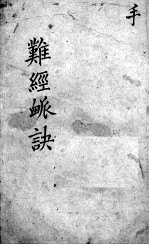 手
難經脈訣